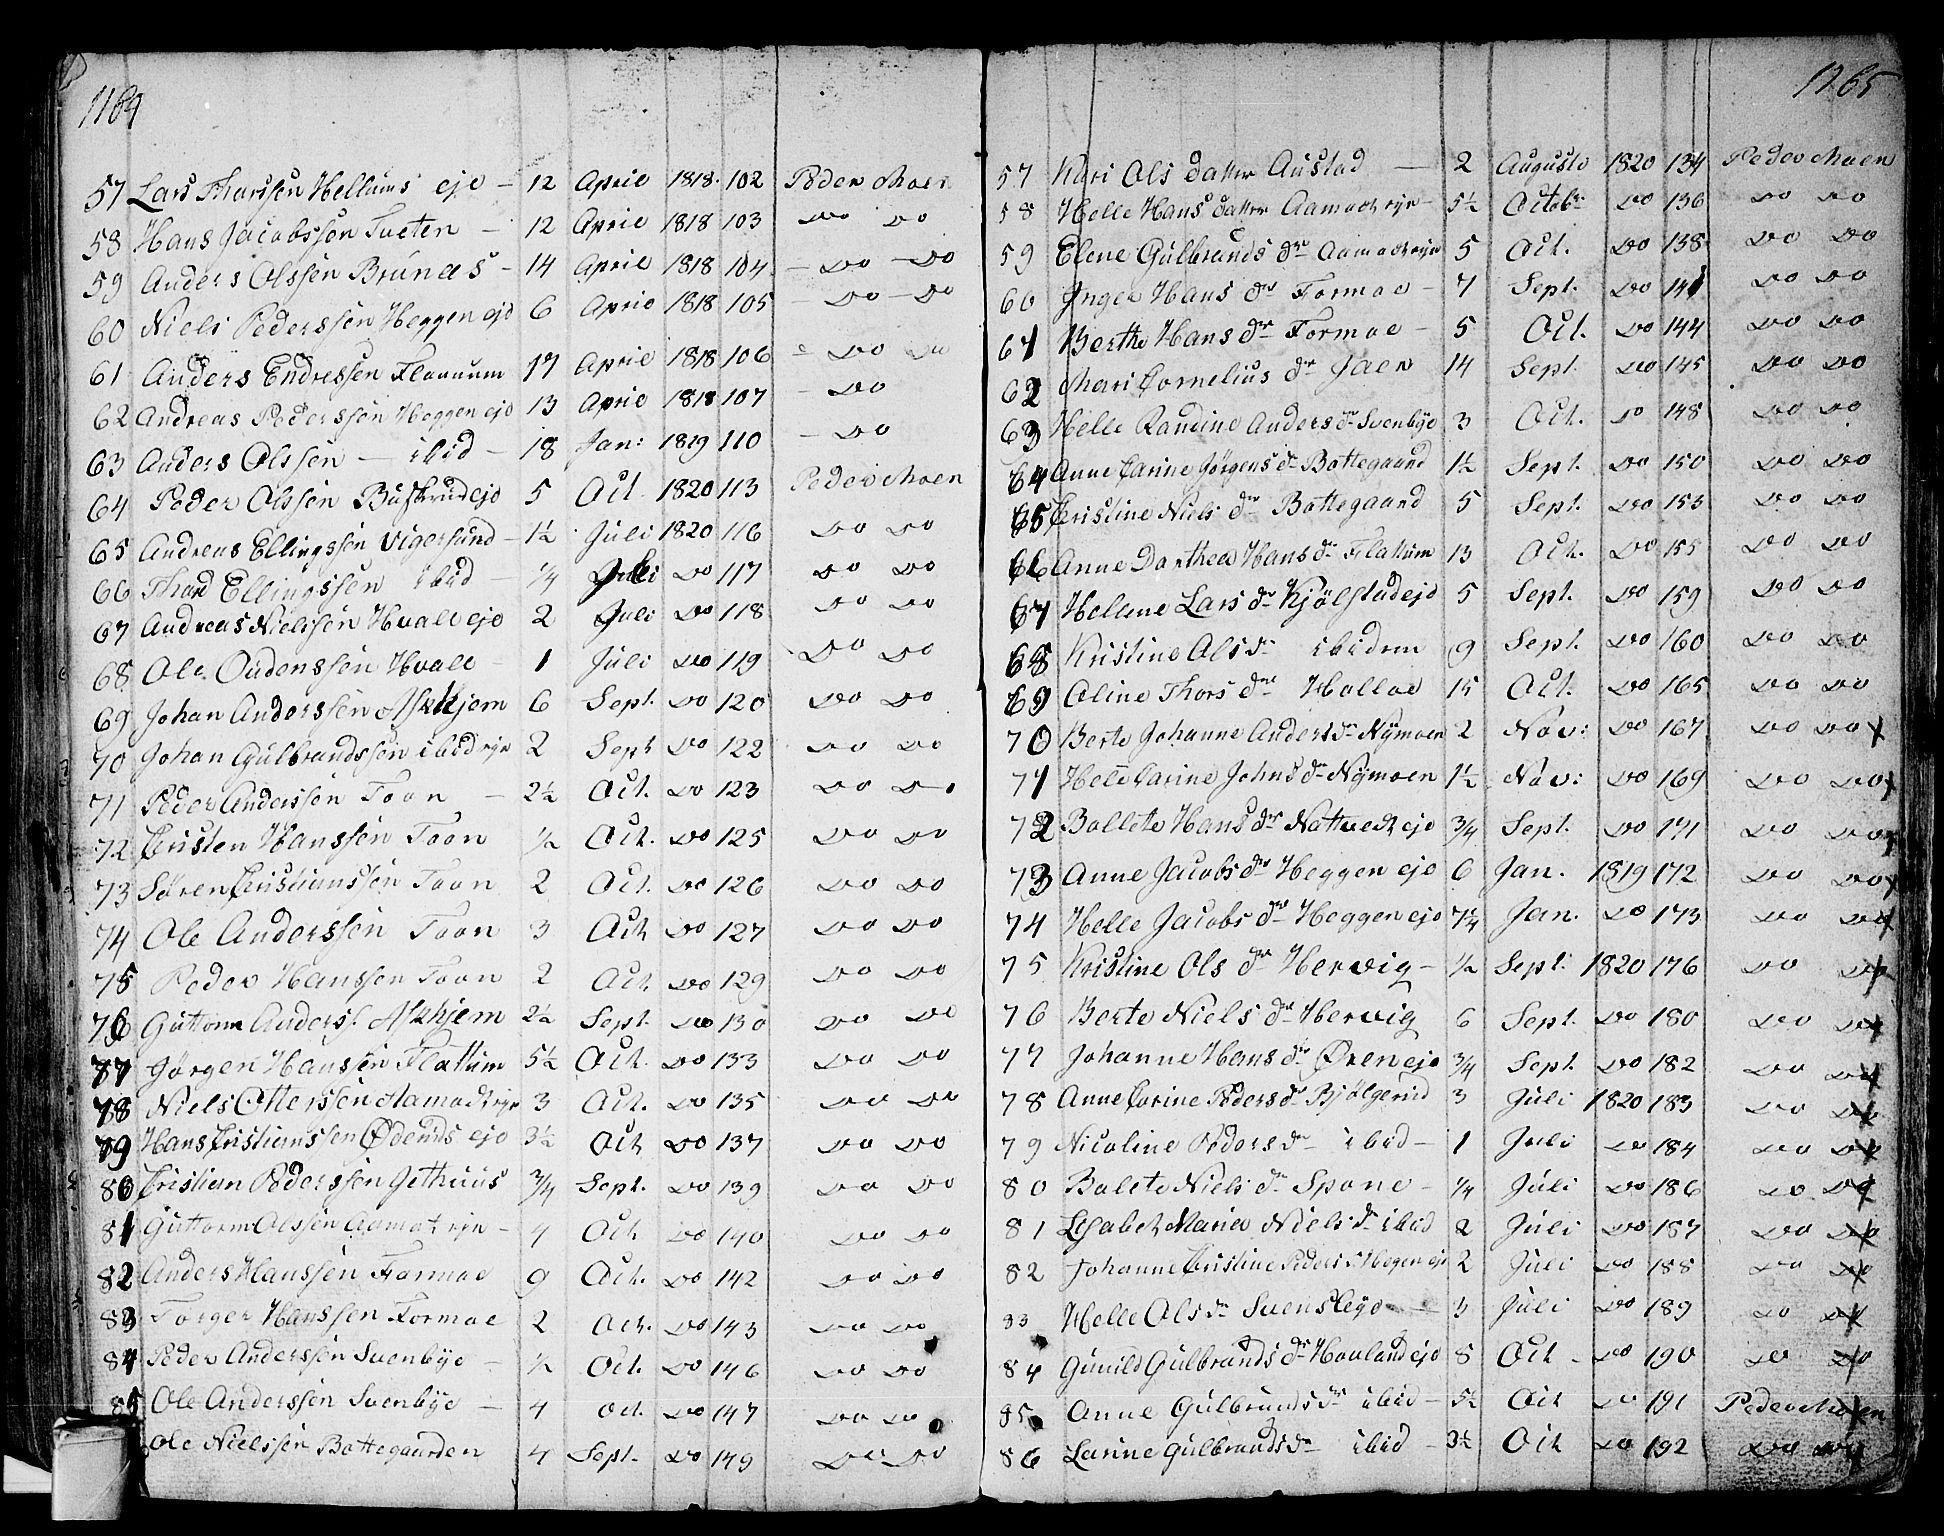 1164
57 Lars Tharssen Hellums eje - 12 Aprie 1818. 102 Peder Moen
58 Hans Jacobssen Tveten - 12 Aprie 1818 103 Do Do
59 Anders Olssen Brunæs - 14 Aprie 1818 104 - Do - Do
60 Niels Pederssen Heggen eje 6 Aprie 1818 105 - Do - Do
61 Anders Endressen Flannum 17 Aprie 1818 106 - Do Do
62 Andreas Pederssen Heggen eje 13 Aprie 1818 107 - Do
63 Anders Olssen - ibid - 18 Jan: 1819 110 - Do
64 Peder Olssen Buskrud eje 5 Oct. 1820 113 Peder Moen
65 Andreas Ellingssen Vigersund - 1½ Juli 1820 116 Do Do
66 Thord Ellingssen ibid - ¼ Juli Do 117 Do Do
67 Andreas Nielssen Hvale eje 2 Juli Do 118 Do Do
68 Ole Oudenssen Hvale - 1 Juli Do 119 Do Do
69 Johan Anderssen Askhjem 6 Sept. Do 120 Do Do
70 Johan Gulbrandssen ibid eje 2 Sept Do 122 Do Do
71 Peder Anderssen Toon - 2½ Oct. Do 123 Do Do
72 Cristen Hanssen Toon ½ Oct. Do 125 Do Do
73 Søren Cristianssen Toon 2 Oct. Do 126 Do Do
74 Ole Anderssen Toon 3 Oct Do 127 Do Do
75 Peder Hanssen Toon 2 Oct Do 129 Do Do
76 Guttorm Anders. Askhjem 2½ Sept. Do 130 Do Do
77 Jørgen Hanssen Flattum 5½ Oct. Do 133 Do Do
78 Niels Otterssen Aamodt eje 3 Oct. Do 135 Do Do
79 Hans Cristianssen Ødends eje 3½ Oct Do 137 Do Do
80 Cristian Pederssen Gethuus ¾ Sept. Do 139 Do Do
81 Guttorm Olssen Aamot eje - 4 Oct Do 140 Do Do
82 Anders Hanssen Formoe 9 Oct. Do 142 Do Do
83 Torger Hanssen Formoe 2 Oct. Do 143 Do Do
84 Peder Anderssen Svenbye - ½ Oct. Do 146 Do Do
85 Ole Anderssen Svenbye - 4 Oct. Do 147 Do Do
Ole Nielssen Bottegaarden 4 Sept. Do 149 Do Do
1165
57 Kari Ols Datter Austad - 2 Augusto 1820 134 Peder Moen
58 Helle Hans Datter Aamodt eje - 5½ Octobr Do 136 Do Do
59 Elene Gulbrands dr Aamodt eje 5 Oct. Do 138 Do Do
60 Inger Hans dr Formoe - 7 Sept. Do 141 Do Do
61 Berthe Hans dr Formoe - 5 Oct. Do 144 Do Do
62 Mari Cornelius dr Jaen 14 Sept. Do 145 Do Do
63 Helle Randine Anders dr Svenbye 3 Oct. Do 148 Do Do
64 Anne Carine Jørgens dr Bottegaard 1½ Sept. Do 150 Do Do
65 Cristine Niels dr Bottegaard 5 Sept. Do 153 Do Do
66 Anne Dorthea Hans dr Flattum 13 Oct. Do 155 Do Do
67 Helene Lars dr Kjølstad eje 5 Sept. Do 159 Do Do
68 Kristine Ols dr ibidem 9 Sept. Do 160 Do Do
69 Oline Thors dr Holloe 15 Oct. Do 165 Do Do
70 Berte Johanne Anders dr Nymoen 2 Nov: Do 167 Do Do
71 Hele Carine Johns dr Nymoen 1½ Nov: Do 169 Do Do
72 Bollete Hans dr Nattvedt eje ¾ Sept. Do 171 Do Do
73 Anne Jacobs dr Heggen eje 6 Jan. 1819 172 Do Do
74 Helle Jacobs dr Heggen eje 7¼ Jan. Do 173 Do Do
75 Kristine Ols dr Hervig - ½ Sept. 1820 176 Do Do
76 Berte Niels dr Hervig 6 Sept. Do 180 Do Do
77 Johanne Hans dr Øren eje ¾ Sept. Do 182 Do Do
78 Anne Corine Peders dr Bjølgerud 3 Juli 1820 183 Do Do
79 Nicoline Peders dr ibid - 1 Juli Do 184 Do Do
80 Bolete Niels dr Spone - ¼ Juli Do 186 Do Do
81 Lisabet Maria Niels dr ibid 2 Juli Do 187 Do Do
82 Johanne Cristine Peders d. Hegen eje 2 Juli Do 188 Do Do
83 Helle Ols dr Svensleye - 3 Juli Do 189 Do Do
84 Gunild Gulbrands dr Hovland eje 8 Oct - Do 190 Do Do
85 Anne Gulbrands dr ibid - 5½ Oct Do 191 Peder Moen
86 Larine Gulbrands dr ibid - 3½ Oct Do 192 Do Do